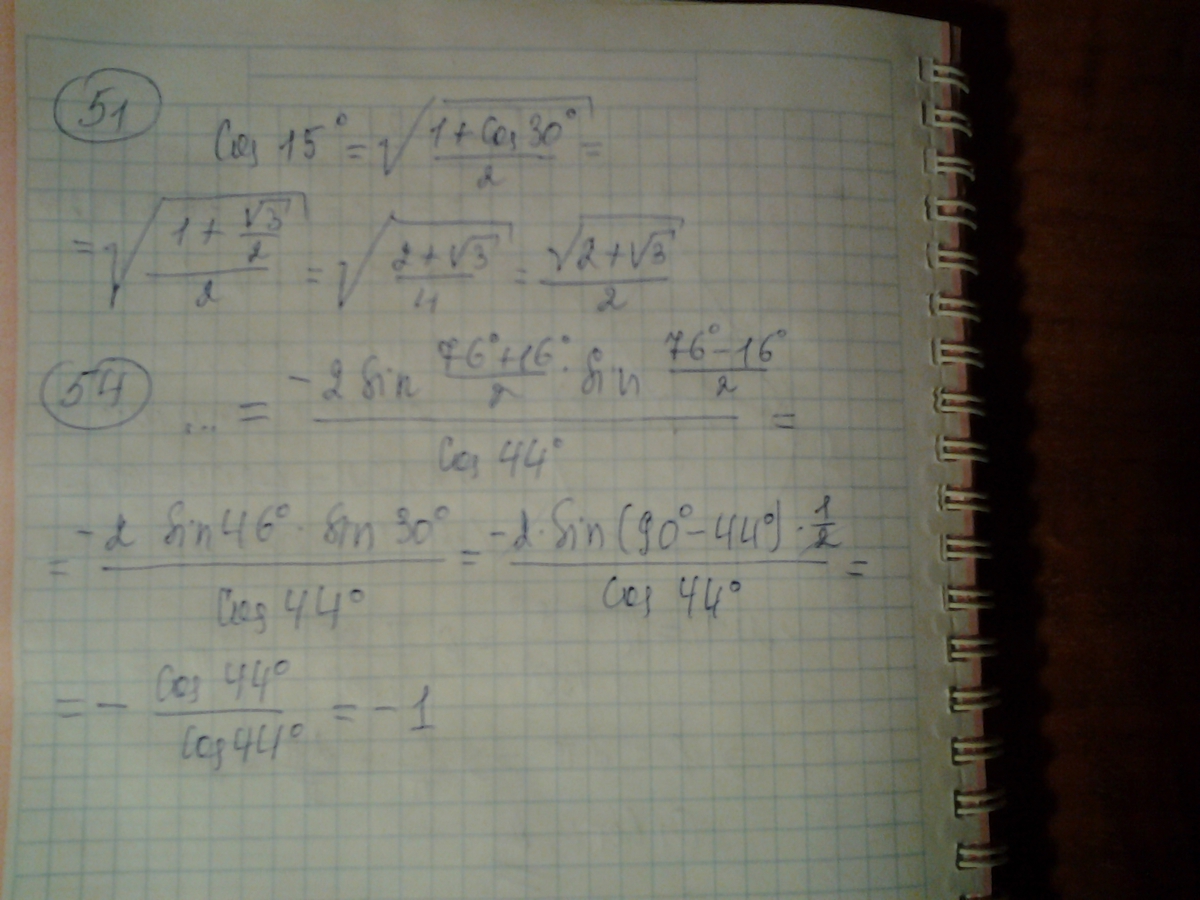 51
cos 15° = √((1 + cos 30°)/2) =
= √((1 + √3/2)/2) = √((2 + √3)/4) = √(2 + √3)/2
54
... = (-2 sin (76° + 16°)/2 · sin (76° - 16°)/2)/(cos 44°) =
= (-2 sin 46° · sin 30°)/(cos 44°) = (-2 · sin (90° - 44°) · 1/2)/(cos 44°) =
= - (cos 44°)/(cos 44°) = -1